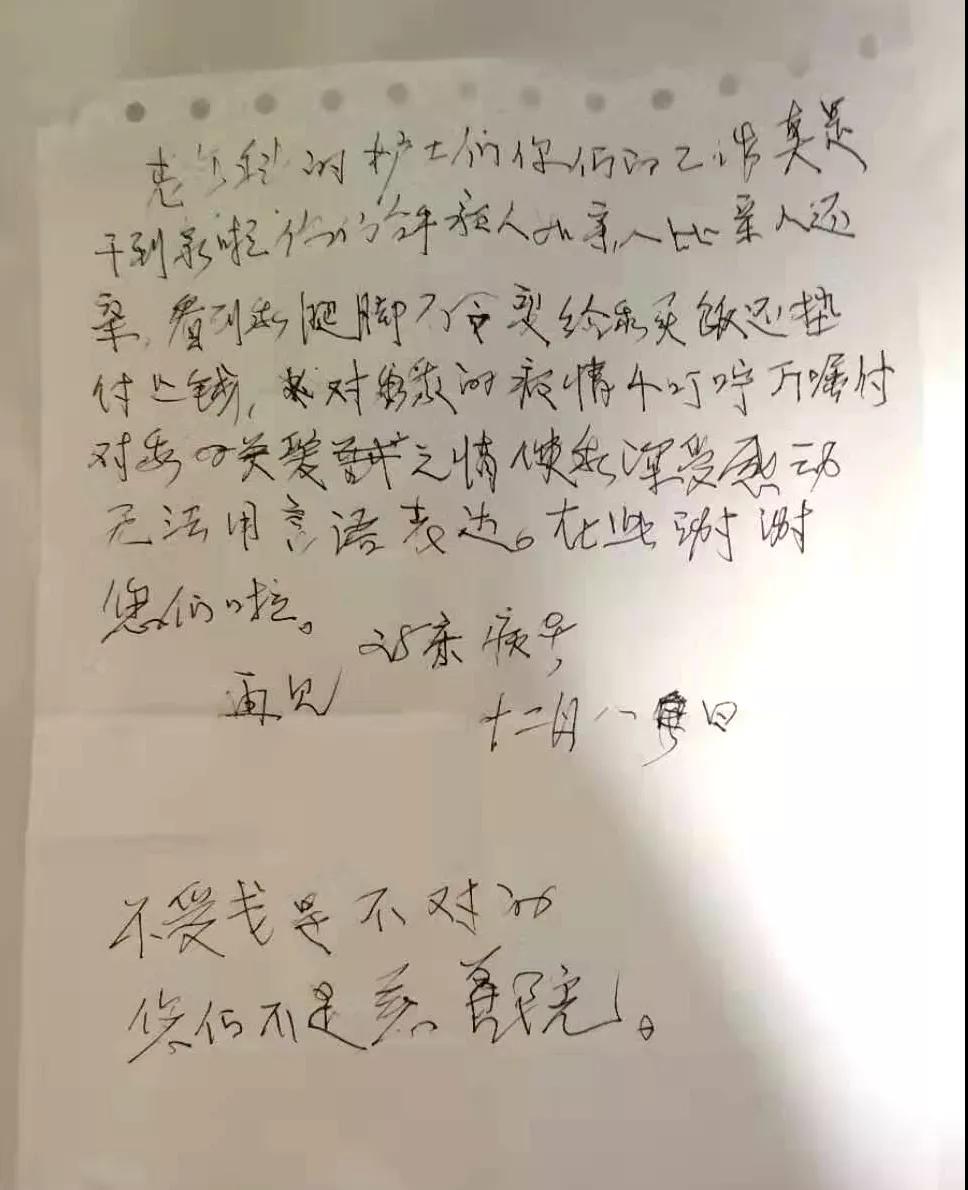 的护士们你们的工作真是
干到家啦你们待病人如亲人比亲人还
亲,看到我腿脚不合要给我买饭还垫
付上钱,对我的病情千叮咛万嘱付
对我的关爱之情使我深受感动
无法用言语表达。在此谢谢
您们啦。
病号
再见
十二月八日
不受钱是不对的
您们不是慈善院。